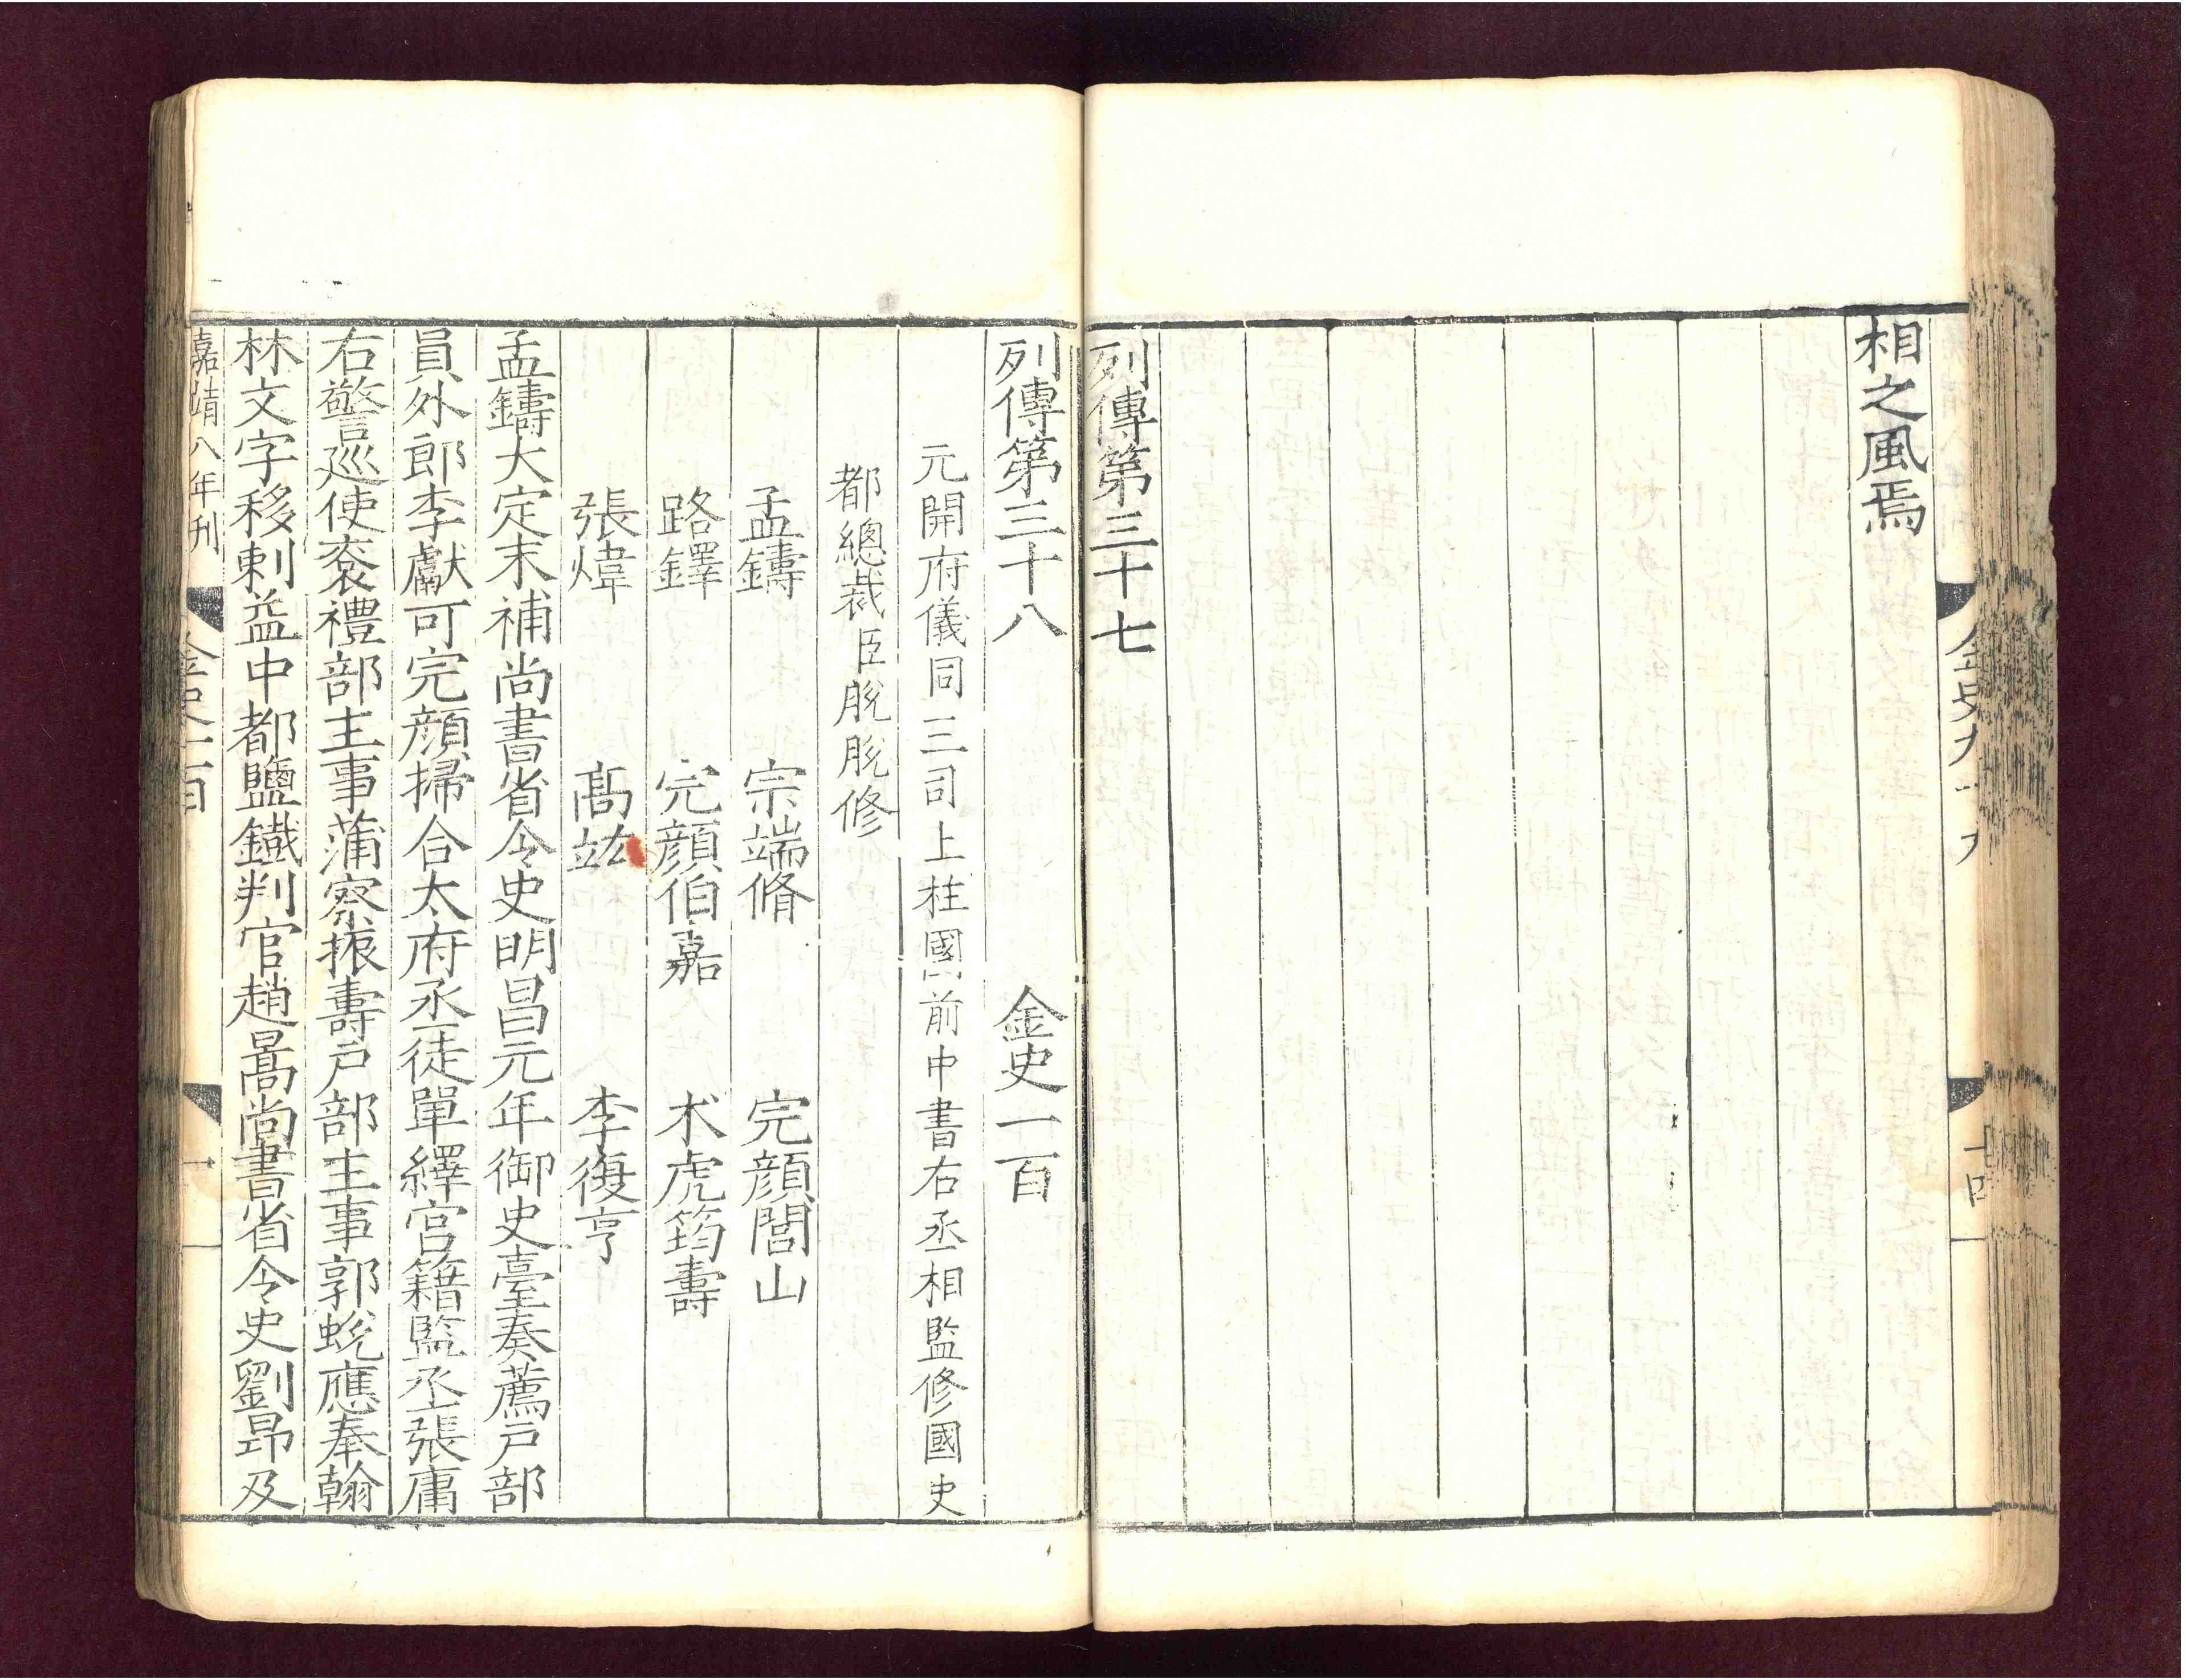 相之風焉
列傳第三十七
列傳第三十八 金史一百
元開府儀同三司上柱國前中書右丞相監修國史
都總裁臣脫脫修
孟鑄 宗端脩 完顏閭山
路鐸 完顏伯嘉 术虎筠壽
張煒 髙竑 李復亨
孟鑄大定末補尚書省令史明昌元年御史臺奏薦戶部
員外郎李獻可完顏掃合太府丞徒單繹宫籍監丞張庸
右警廵使衮禮部主事蒲察振壽戶部主事郭蛻應奉翰
林文字移剌益中都鹽鐵判官趙暠尚書省令史劉昂及
嘉靖八年刊
金史一百
一